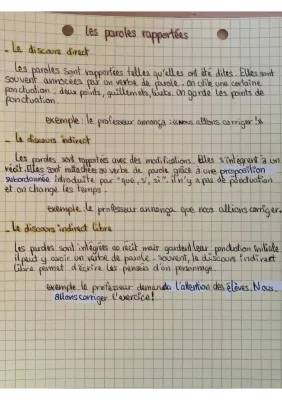 les paroles rapportées
- Le discours direct
Les paroles sont rapportées telles qu'elles ont été dites. Elles sont
souvent annoncées par un verbe de parole. On utilise une certaine
ponctuation : deux points, guillemets, tirets. On garde les points de
ponctuation.
exemple : le professeur annonça : « nous allons corriger ! »
- Le discours indirect
Les paroles sont rapportées avec des modifications. Elles s'intègrent à un
récit. Elles sont rattachées au verbe de parole grâce à une proposition
subordonnée introduite par "que, s', si". il n'y a pas de ponctuation
et on change les temps.
exemple : le professeur annonça que nous allions corriger.
- Le discours indirect libre
les paroles sont intégrées au récit mais gardent leur ponctuation initiale
il peut y avoir un verbe de parole. souvent, le discours indirect
libre permet d'écrire les pensées d'un personnage.
exemple : le professeur demanda l'attention des élèves. Nous
allons corriger l'exercice !